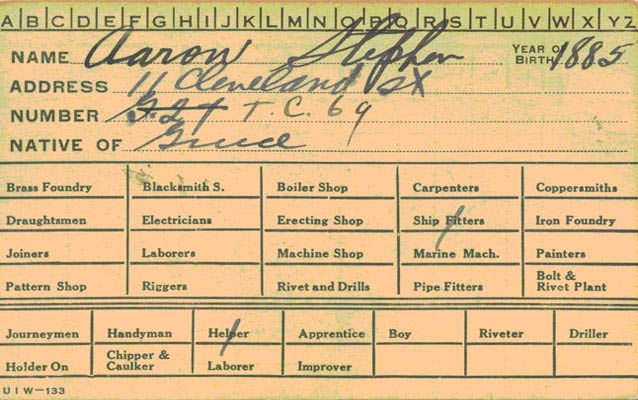 A B C D E F G H I J K L M N O P Q R S T U V W X Y Z
NAME Aaron Stephen YEAR OF BIRTH 1885
ADDRESS 11 Cleveland St
NUMBER G.24 T.C. 69
NATIVE OF Greece
Brass Foundry Blacksmith S. Boiler Shop Carpenters Coppersmiths
Draughtsmen Electricians Erecting Shop Ship Fitters Iron Foundry
Joiners Laborers Machine Shop Marine Mach. Painters
Pattern Shop Riggers Rivet and Drills Pipe Fitters Bolt & Rivet Plant
Journeymen Handyman Helper Apprentice Boy Riveter Driller
Holder On Chipper & Caulker Laborer Improver
U I W—133